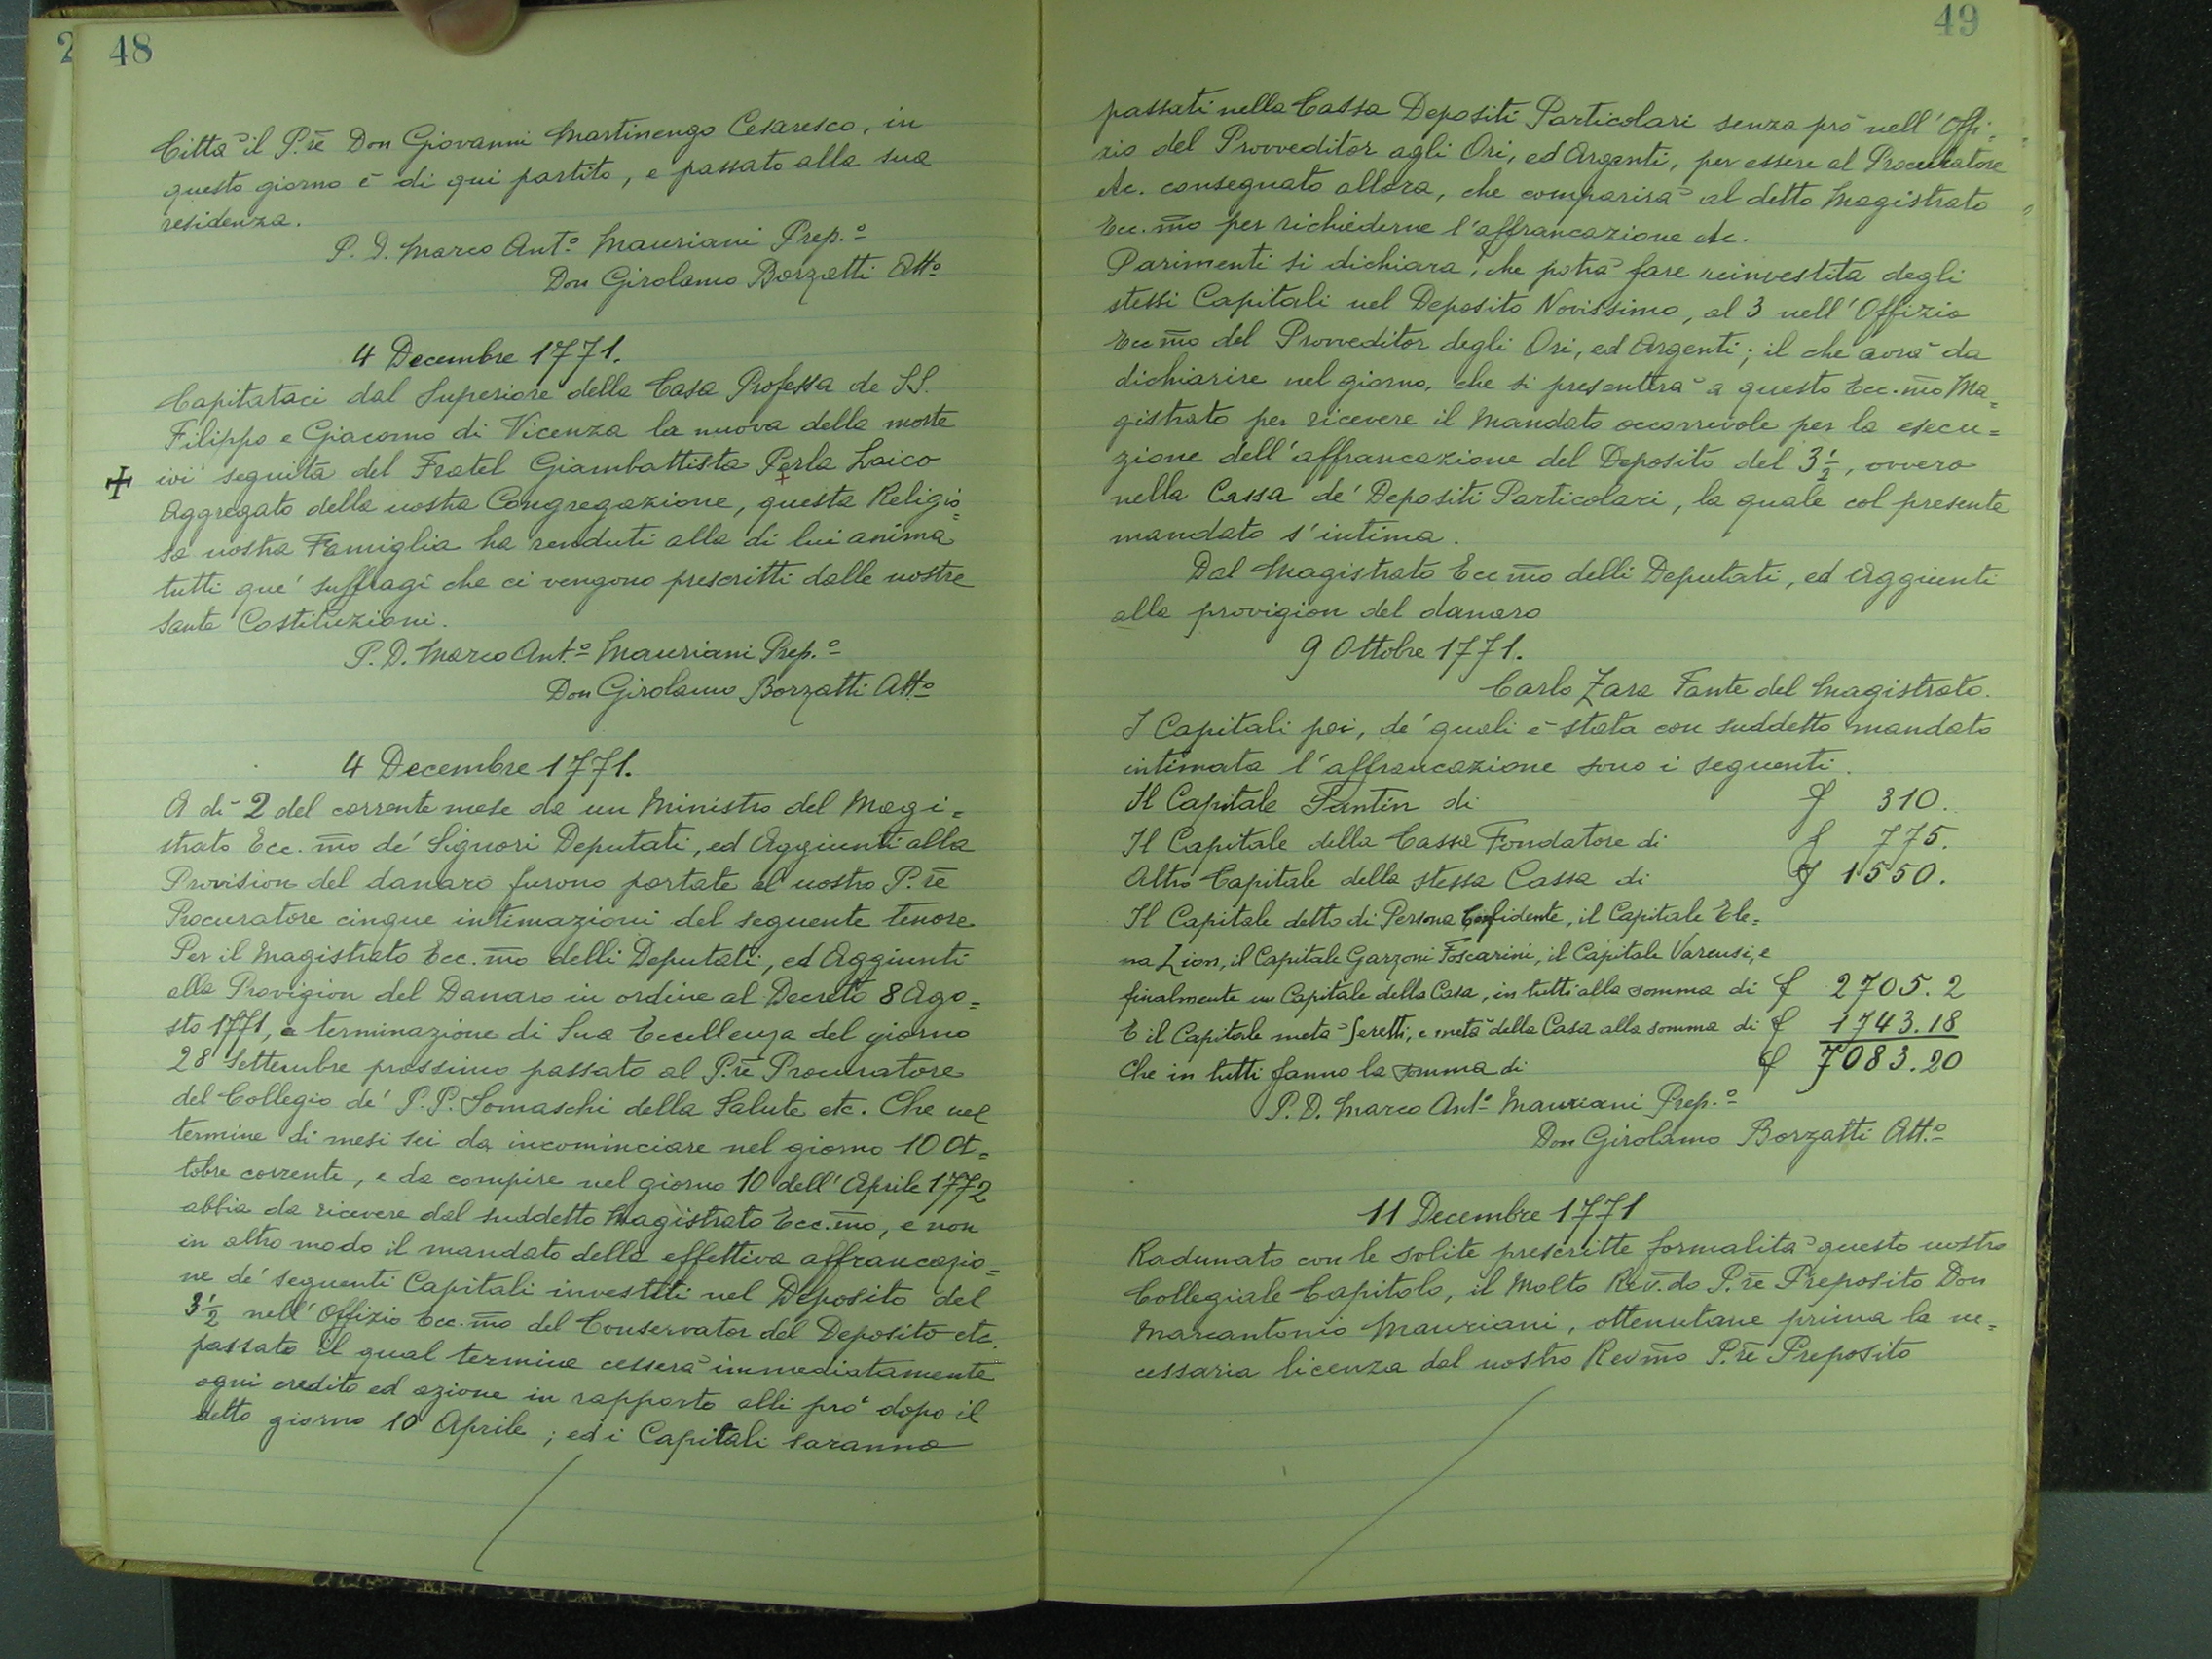 48
Città il P.re Don Giovanni Martinengo Cesaresco, in
questo giorno è di qui partito, e passato alla sua
residenza.
P. D. Marco Ant.o Mauriani Prep.o
Don Girolamo Borzatti Att.o
4 Decembre 1771.
Capitataci dal Superiore della Casa Professa de SS.
Filippo e Giacomo di Vicenza la nuova della morte
ivi seguita del Fratel Giambattista Perla Laico
Aggregato della nostra Congregazione, questa Religio=
sa nostra Famiglia ha renduti alla di lui anima
tutti que' suffragi che ci vengono prescritti dalle nostre
sante Costituzioni.
P. D. Marco Ant.o Mauriani Prep.o
Don Girolamo Borzatti Att.o
4 Decembre 1771.
A di 2 del corrente mese da un Ministro del Magi=
strato Ecc.mo de' Signori Deputati, ed Aggiunti alla
Provision del danaro furono portate al nostro P.re
Procuratore cinque intimazioni del seguente tenore
Per il Magistrato Ecc.mo delli Deputati, ed Aggiunti
alla Provigion del Danaro in ordine al Decreto 8 Ago=
sto 1771, e terminazione di Sua Eccellenza del giorno
28 Settembre prossimo passato al P.re Procuratore
del Collegio de' P.P. Somaschi della Salute etc. Che nel
termine di mesi sei da incominciare nel giorno 10 Ot=
tobre corrente, e da compire nel giorno 10 dell' Aprile 1772
abbia da ricevere dal suddetto Magistrato Ecc.mo, e non
in altro modo il mandato della effettiva affrancazio=
ne de' seguenti Capitali investiti nel Deposito del
3 1/2 nell' Offizio Ecc.mo del Conservator del Deposito etc.
passato il qual termine cesserà immediatamente
ogni credito ed azione in rapporto alli prò dopo il
detto giorno 10 Aprile; ed i Capitali saranno
49
passati nella Cassa Depositi Particolari senza prò nell' Offi=
zio del Provveditor agli Ori, ed Argenti, per essere al Procuratore
etc. consegnato allora, che comparirà al detto Magistrato
Ecc.mo per richiederne l'affrancazione etc.
Parimenti si dichiara, che potrà fare reinvestita degli
stessi Capitali nel Deposito Novissimo, al 3 nell' Offizio
Ecc.mo del Provveditor degli Ori, ed Argenti; il che avrà da
dichiarire nel giorno, che si presenterà a questo Ecc.mo Ma=
gistrato per ricevere il Mandato occorrevole per la esecu=
zione dell' affrancazione del Deposito del 3 1/2, ovvero
nella Cassa de' Depositi Particolari, la quale col presente
mandato s'intima.
Dal Magistrato Ecc.mo delli Deputati, ed Aggiunti
alla provigion del danaro
9 Ottobre 1771.
Carlo Zara Fante del Magistrato.
I Capitali poi, de' quali è stata con suddetto mandato
intimata l'affrancazione sono i seguenti.
Il Capitale Fantin di f 310.
Il Capitale della Cassa Fondatore di f 775.
Altro Capitale della stessa Cassa di f 1550.
Il Capitale detto di Persona Confidente, il Capitale Ele=
na Lion, il Capitale Garzoni Foscarini, il Capitale Varensi, e
finalmente un Capitale della Casa, in tutti alla somma di f 2705.2
E il Capitale metà Seretti, e metà della Casa alla somma di f 1743.18
Che in tutti fanno la somma di f 7083.20
P. D. Marco Ant.o Mauriani Prep.o
Don Girolamo Borzatti Att.o
11 Decembre 1771
Radunato con le solite prescritte formalità questo nostro
Collegiale Capitolo, il Molto Rev.do P.re Preposito Don
Marcantonio Mauriani, ottenutane prima la ne=
cessaria licenza dal nostro Rev.mo P.re Preposito